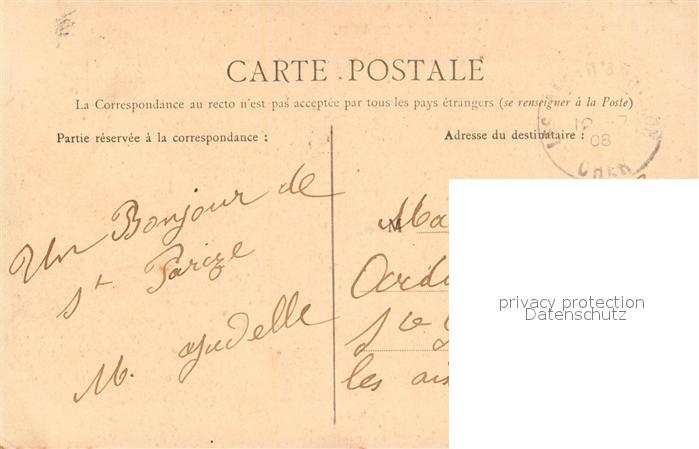 CARTE POSTALE
La Correspondance au recto n'est pas acceptée par tous les pays étrangers (se renseigner à la Poste)
Partie réservée à la correspondance :
Adresse du destinataire :
08
CHER
Un Bonjour de
St Parize
M.
M
Ma
les
privacy protection
Datenschutz